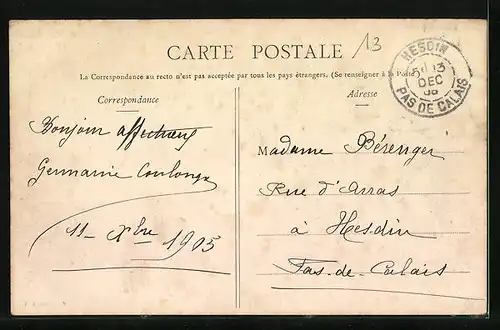 13
CARTE POSTALE
La Correspondance au recto n'est pas acceptée par tous les pays étrangers. (Se renseigner à la Poste)
HESDIN
13
DEC
PAS DE CALAIS
Correspondance
Adresse
Bonjour affectueux
Germaine
11 Xbre 1905
Madame Bérenger
Rue d'Arras
à Hesdin
Pas-de-Calais